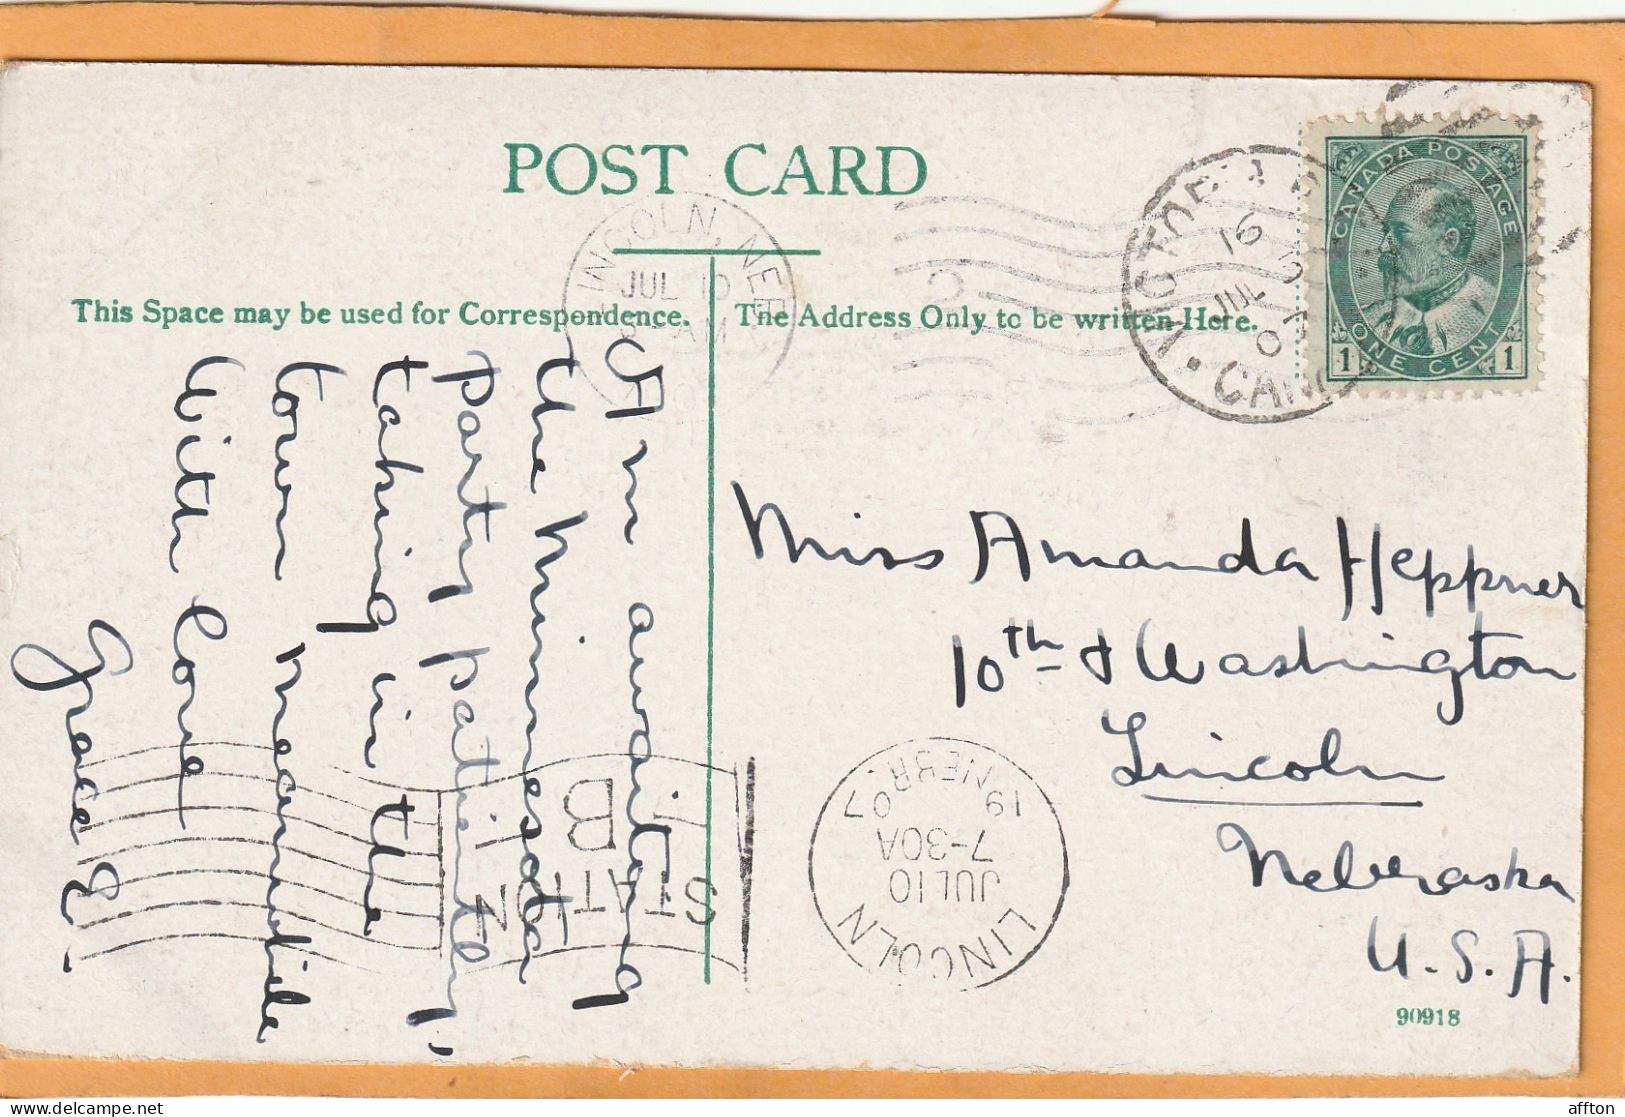 POST CARD
This Space may be used for Correspondence.
The Address Only to be written Here.
CANADA POSTAGE
1 ONE CENT 1
16
JUL 5
07
CAN
LINCOLN, NE
JUL 10
AM
Am awaiting
the Minnesota
party patiently,
taking in the
town meanwhile
With love
Grace E.
Miss Amanda Heppner
10th & Washington
Lincoln
Nebraska
U.S.A.
STATION
B
LINCOLN
JUL 10
7-30A
1907
NEBR.
90918
delcampe.net
affton